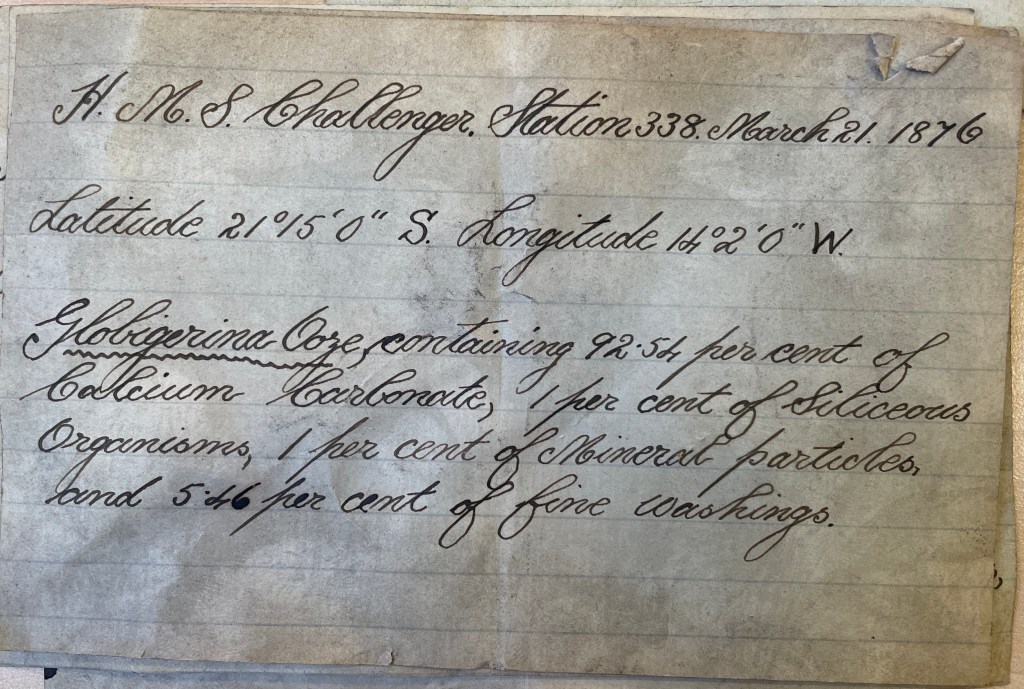 H. M. S. Challenger. Station 338. March 21. 1876
Latitude 21°15'0" S. Longitude 14°2'0" W.
Globigerina Ooze, containing 92·54 per cent of
Calcium Carbonate, 1 per cent of Siliceous
Organisms, 1 per cent of Mineral particles,
and 5·46 per cent of fine washings.